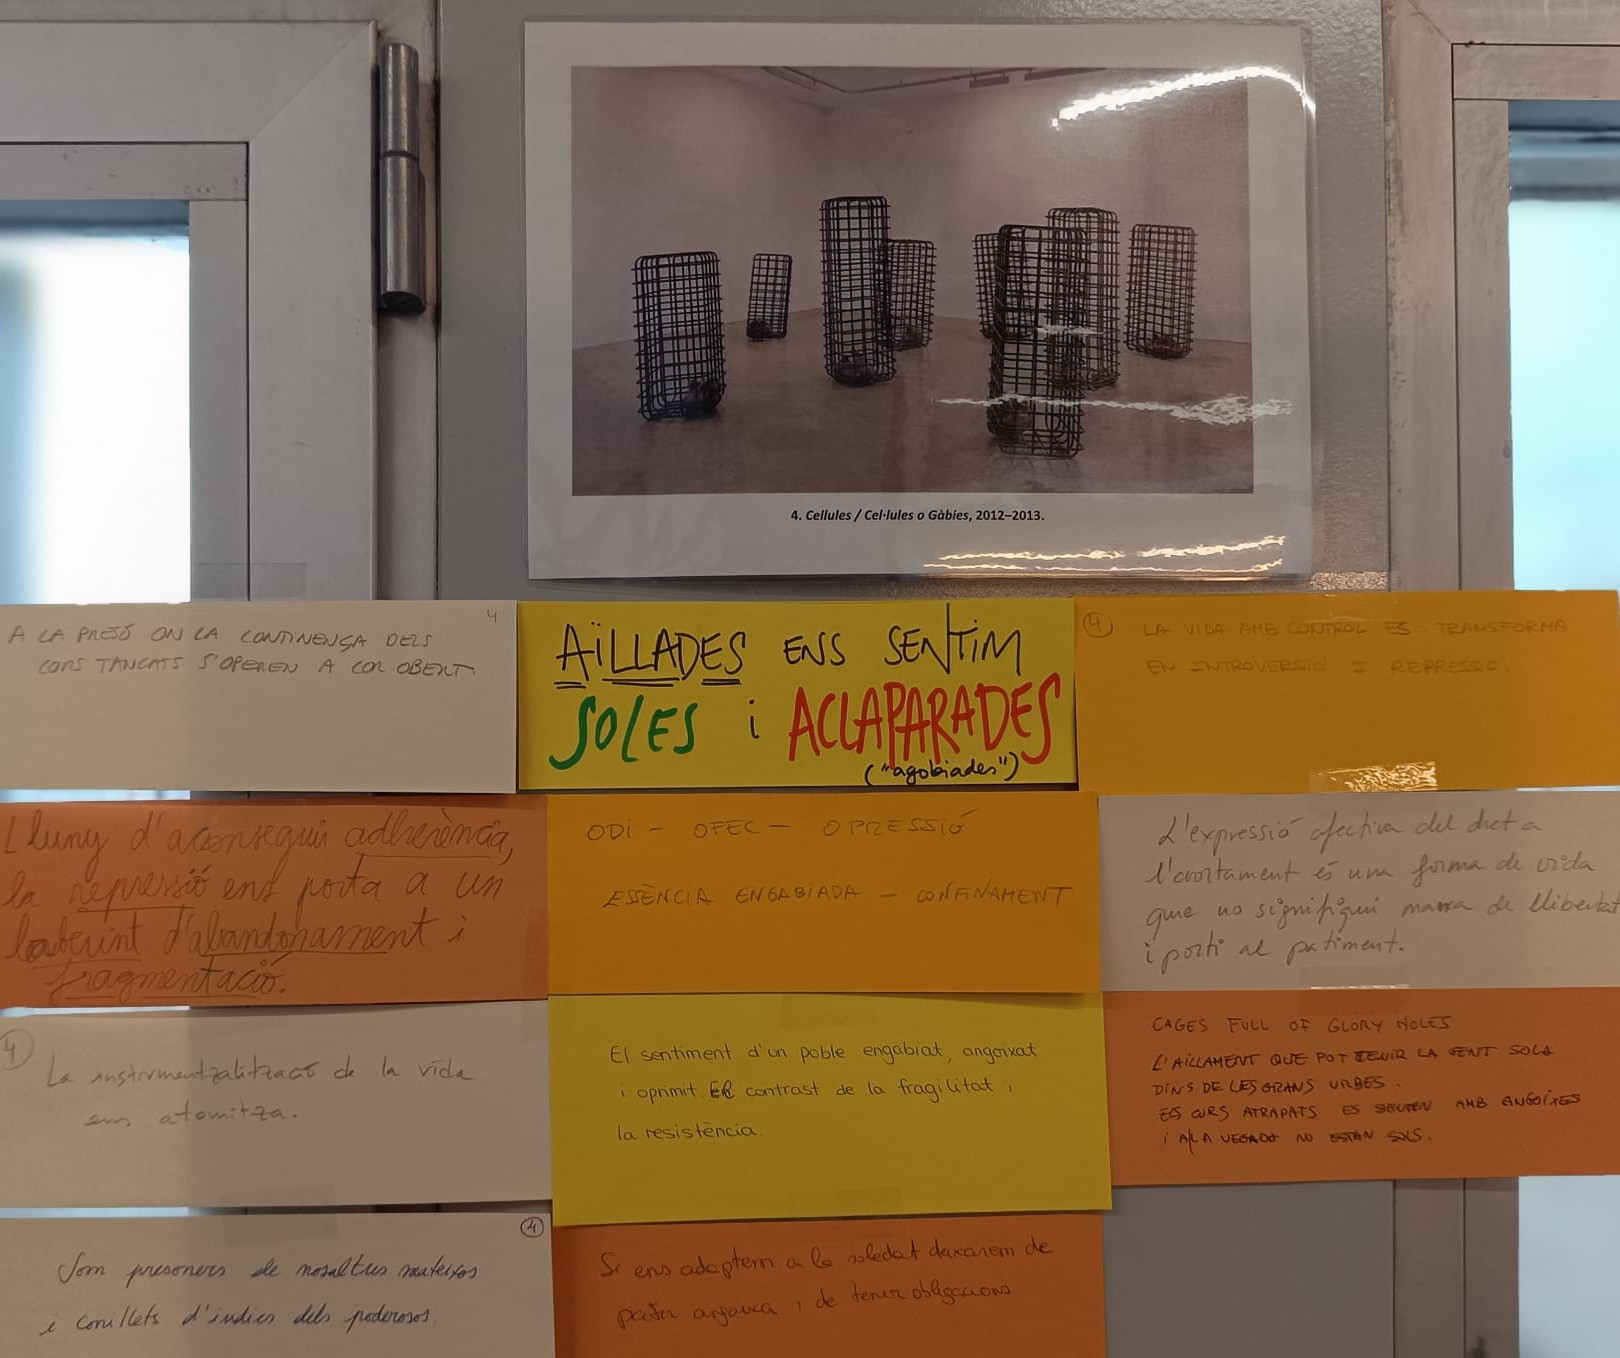 4. Cellules / Cel·lules o Gàbies, 2012–2013.
4
A LA PRESÓ ON LA CONTINENÇA DELS
COSOS TANCATS S'OPEREN A COR OBERT.
AÏLLADES ENS SENTIM
SOLES i ACLAPARADES
("agobiades")
4 LA VIDA AMB CONTROL ES TRANSFORMA
EN INTROVERSIÓ I REPRESSIÓ.
Lluny d'aconseguir adherència,
la repressió ens porta a un
laberint d'abandonament i
fragmentació.
ODI - OFEC - OPRESSIÓ
ESSÈNCIA ENGABIADA - CONFINAMENT
L'expressió afectiva del dret a
l'avortament és una forma de vida
que no signifiqui manca de llibertat
i porti al patiment.
4
La instrumentzalització de la vida
ens atomitza.
El sentiment d'un poble engabiat, angoixat
i oprimit. El contrast de la fragilitat i
la resistència.
CAGES FULL OF GLORY HOLES
L'AÏLLAMENT QUE POT TENIR LA GENT SOLA
DINS DE LES GRANS URBES.
ELS CORS ATRAPATS ES SENTEN AMB ANGOIXES
i A LA VEGADA NO ESTAN SOLS.
4
Som presoners de nosaltres mateixos
i conillets d'índies dels poderosos.
Si ens adaptem a la soledat deixarem de
patir angoixa i de tenir obligacions